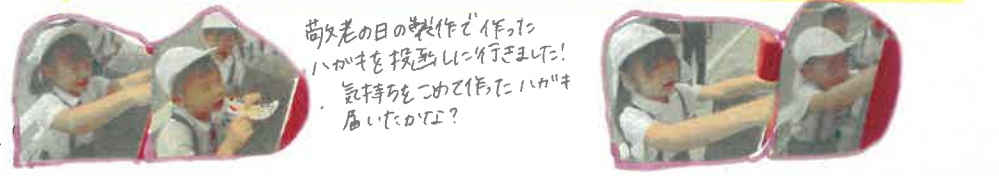 敬老の日の製作で作った
ハガキを投函しに行きました!
気持ちをこめて作ったハガキ
届いたかな?